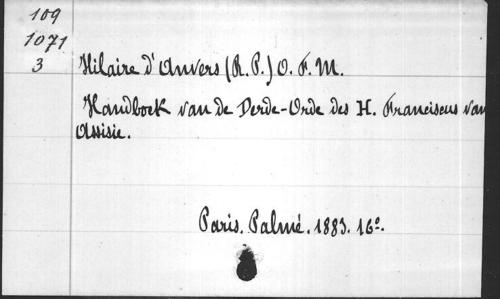 109
1071
3
Hilaire d'Anvers (R. P.) O. F. M.
Handboek van de Derde-Orde des H. Franciscus van
Assisie.
Paris. Palmé. 1883. 16º.